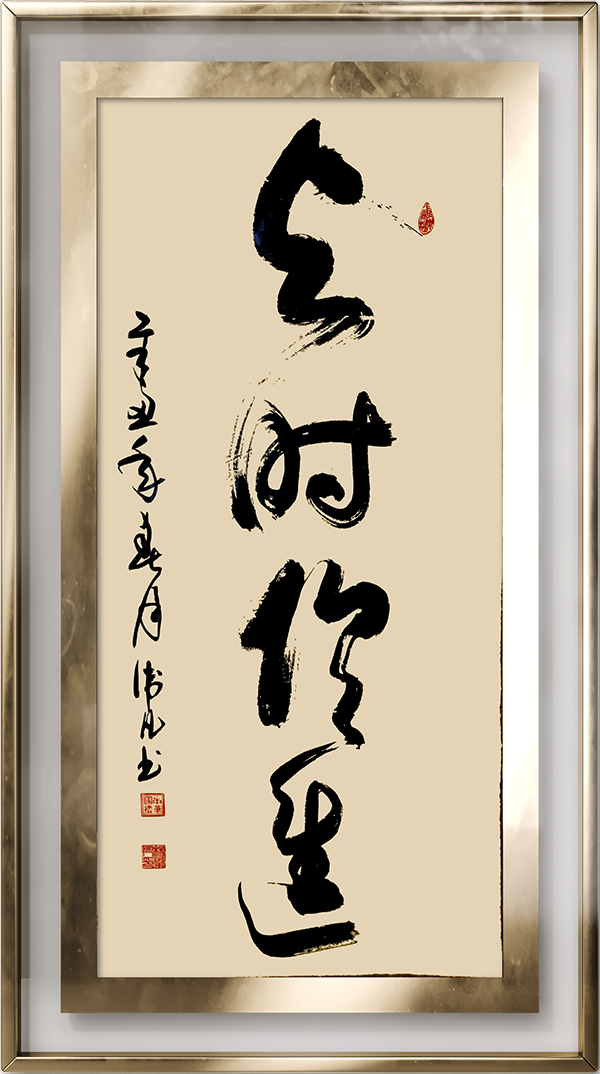 与时偕進
辛丑年春月
书